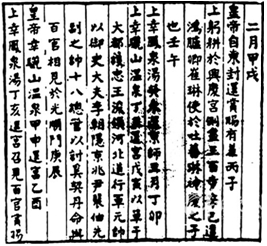 二月甲戌
皇帝自東封還賞賜有差丙子
上躬耕於興慶宮側盡三百步辛巳遣
鴻臚卿崔琳使於吐蕃神慶之子
也壬午
上幸鳳泉湯癸未還京師三月丁卯
上幸驪山溫泉丁亥還宮戊寅以單于
大都護忠王浚領河北道行軍元帥
以御史大夫李朝隱京兆尹裴伷先
副之帥十八總管以討奚契丹命與
百官相見於光順門庚辰
皇帝幸驪山溫泉甲申還宮乙酉
上幸鳳泉湯丁亥還宮召見百官賞賜